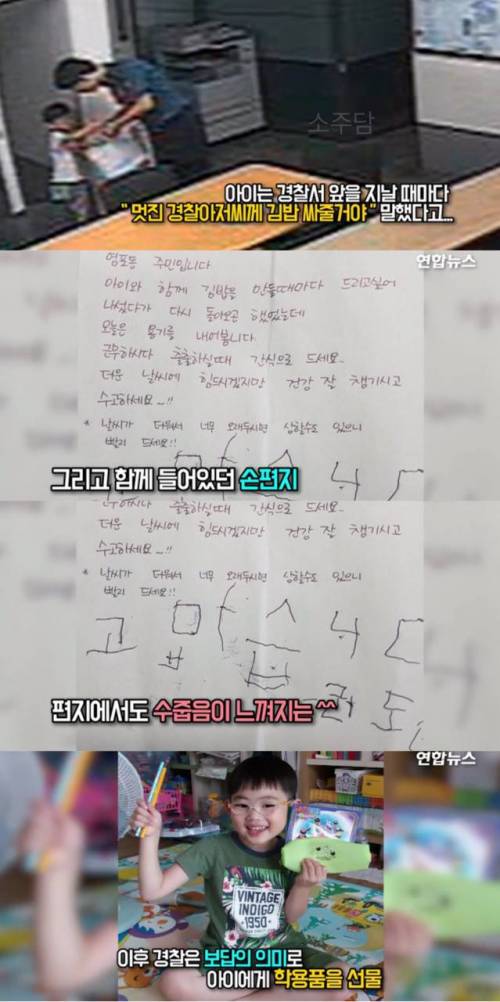 소주담
아이는 경찰서 앞을 지날 때마다
" 멋진 경찰아저씨께 김밥 싸줄거야 " 말했다고...
연합뉴스
영등포 주민입니다
아이와 함께 김밥을 만들때마다 드리고싶어
나섰다가 다시 돌아오곤 했었는데
오늘은 용기를 내어봅니다.
근무하시다 출출하실때 간식으로 드세요..
더운 날씨에 힘드시겠지만 건강 잘 챙기시고
수고하세요...!!
* 날씨가 더워서 너무 오래두시면 상할수도 있으니
빨리 드세요!!
그리고 함께 들어있던 손편지
간식으로 드세요..
더운 날씨에 힘드시겠지만 건강 잘 챙기시고
수고하세요...!!
* 날씨가 더워서 너무 오래두시면 상할수도 있으니
빨리 드세요!!
고 맙 습 니 다
편지에서도 수줍음이 느껴지는 ^^
연합뉴스
VINTAGE
INDIGO
1950
이후 경찰은 보답의 의미로
아이에게 학용품을 선물